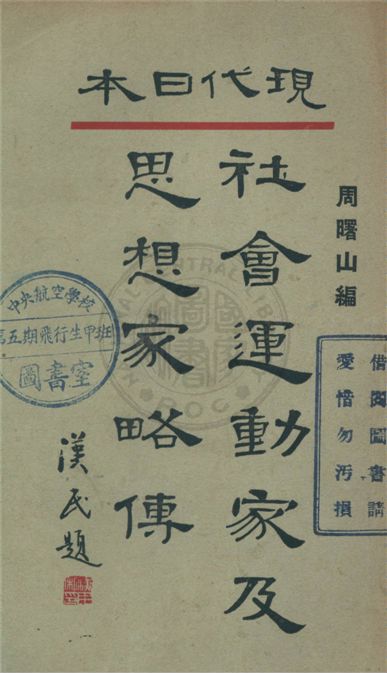 現代日本
周曙山編
社會運動家及
思想家略傳
漢民題
中央航空學校
第五期飛行生甲班
圖書室
借閱圖書請
愛惜勿污損